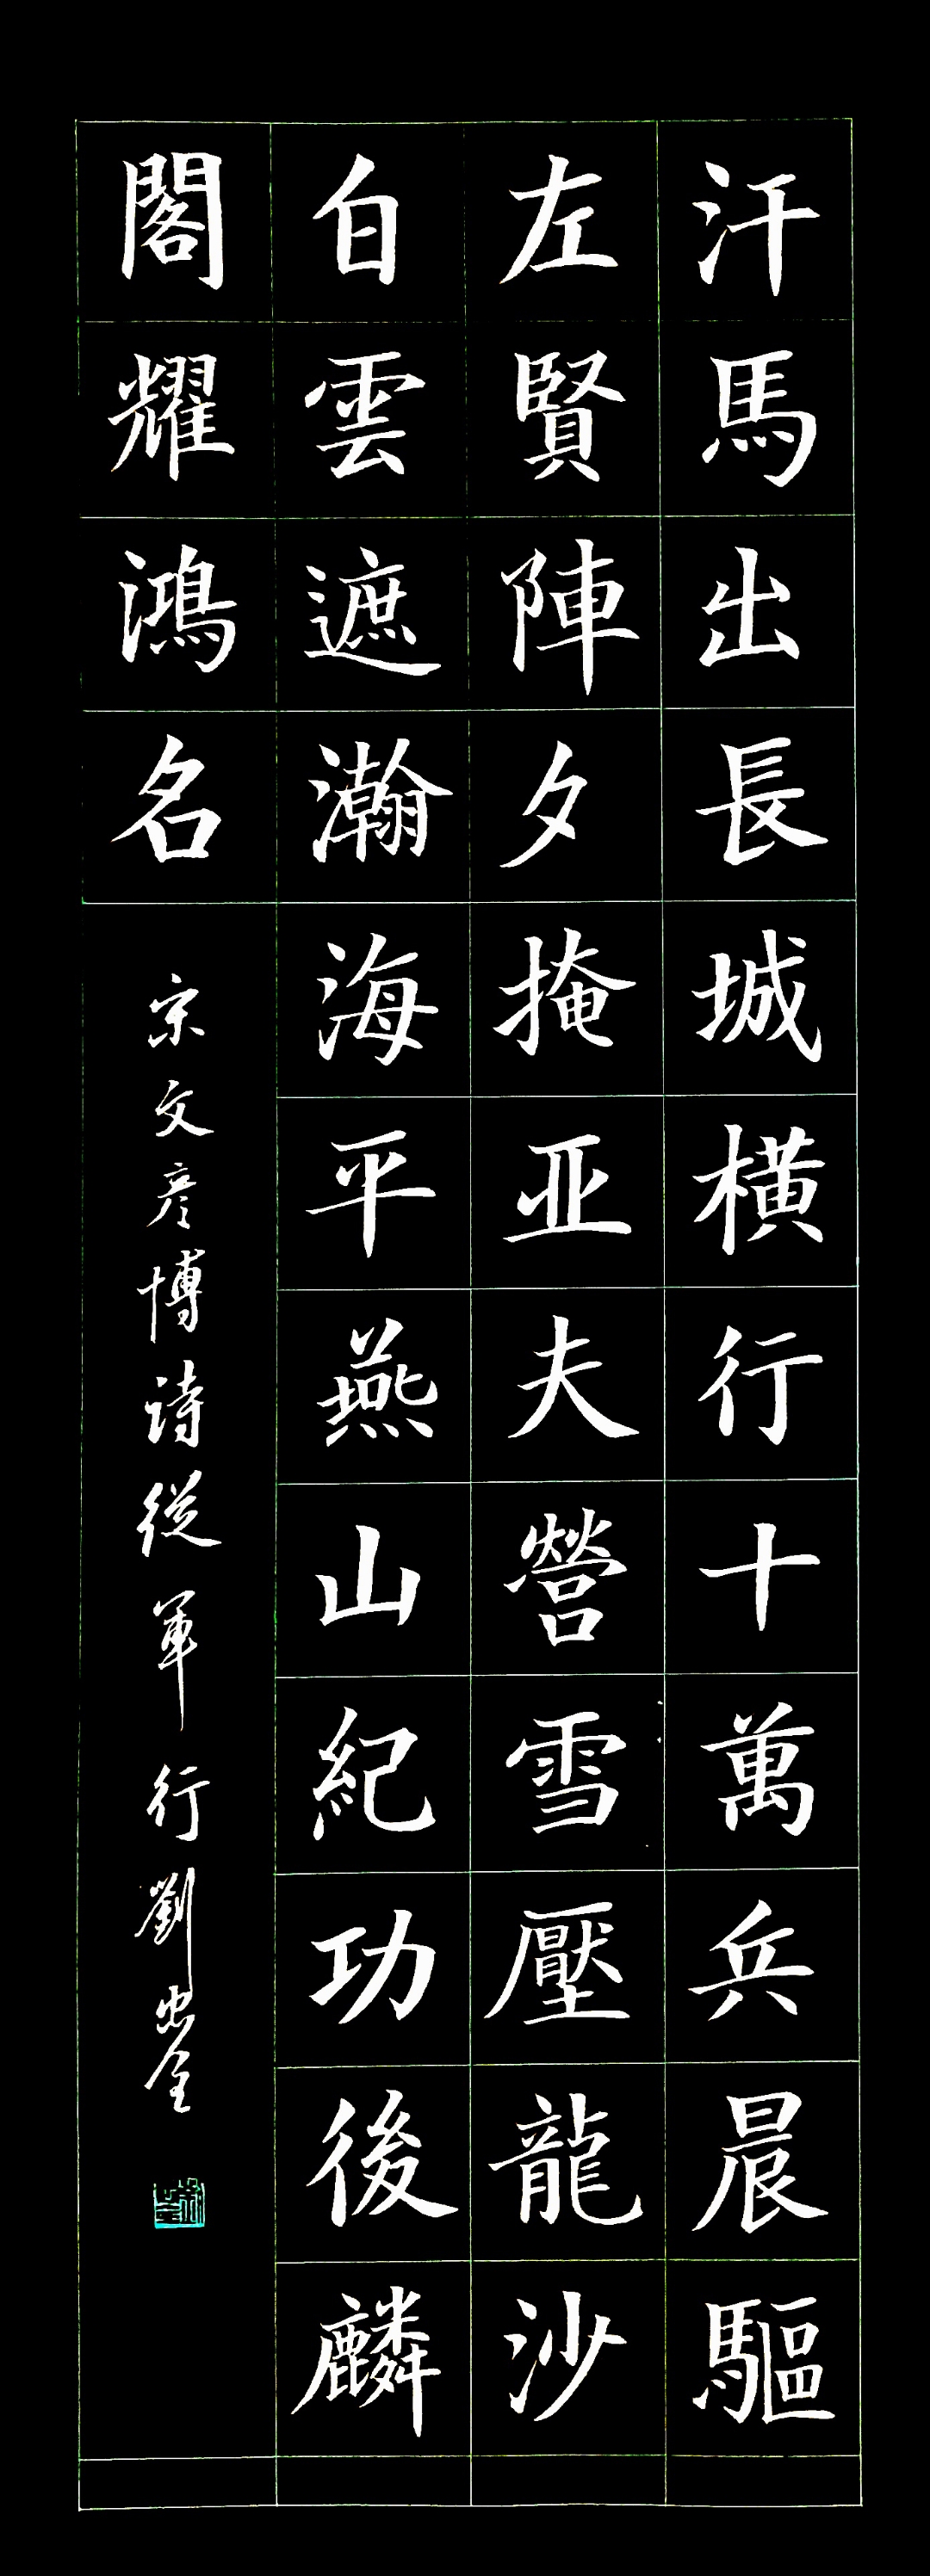 汗馬出長城橫行十萬兵晨驅
左賢陣夕掩亚夫營雪壓龍沙
白雲遮瀚海平燕山紀功後麟
閣耀鴻名
宋文彦博詩從軍行劉忠全